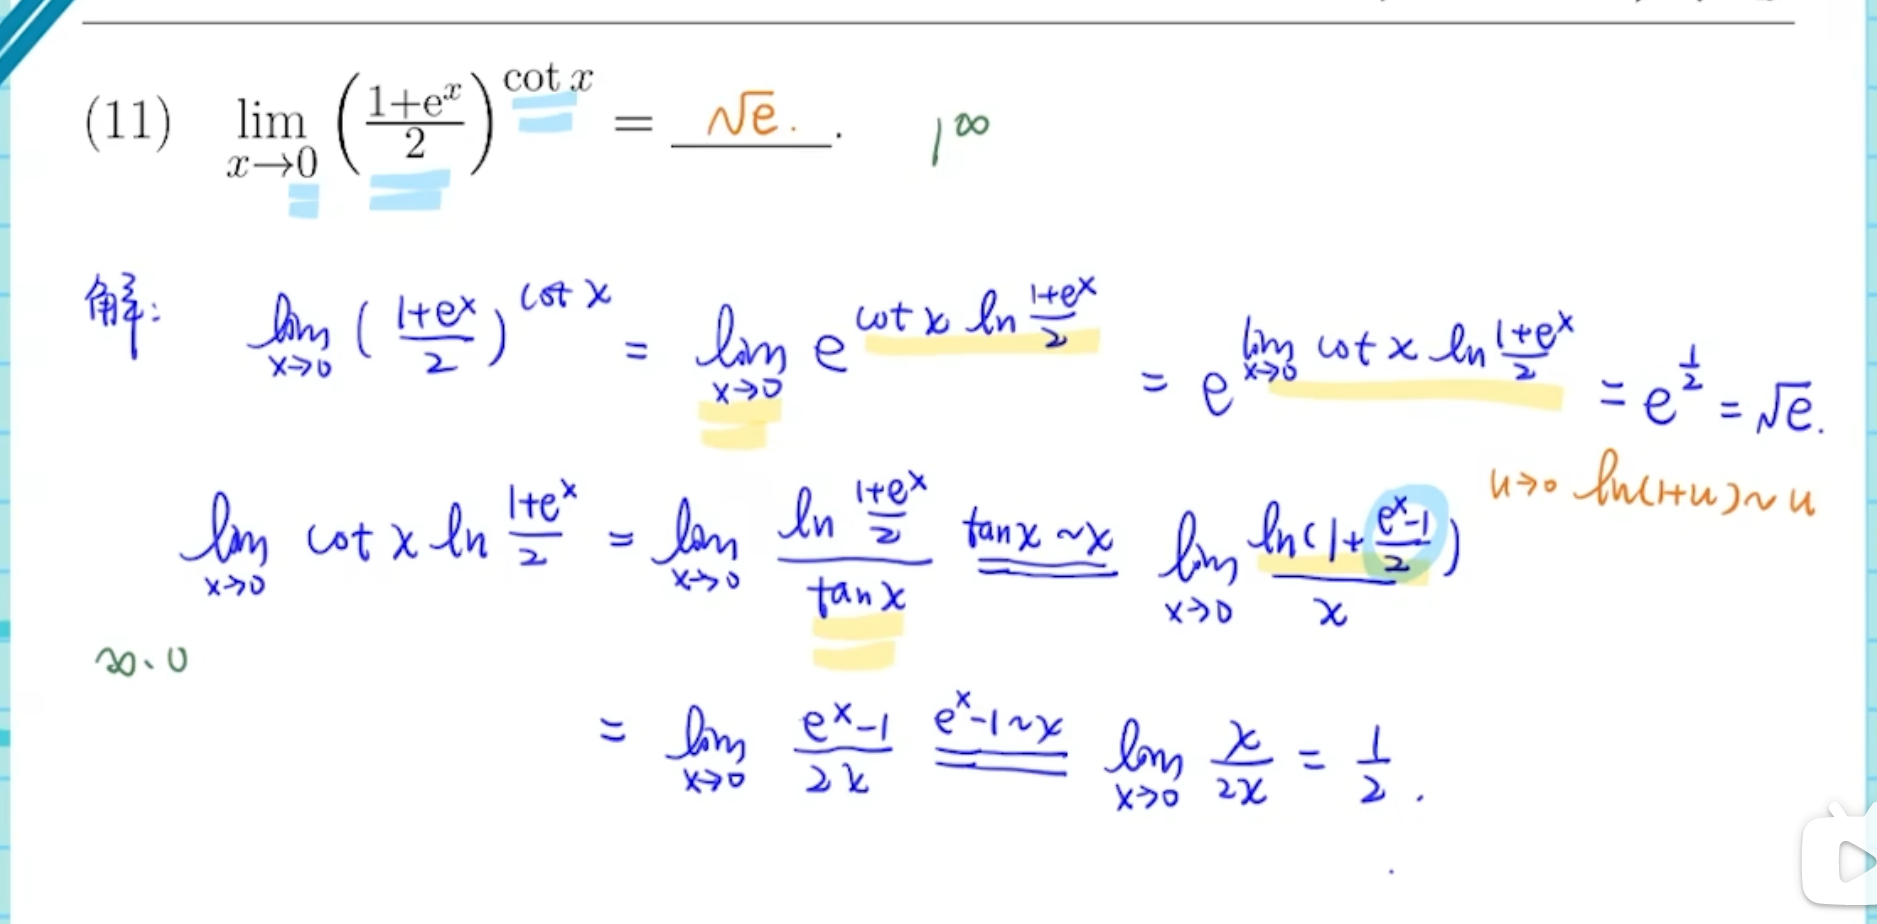 (11) lim x→0 ((1+e^x)/2)^cot x = √e. . 1^∞
解: lim x→0 ((1+e^x)/2)^cot x = lim x→0 e^(cot x ln (1+e^x)/2) = e^(lim x→0 cot x ln (1+e^x)/2) = e^(1/2) = √e.
u→0 ln(1+u)~u
lim x→0 cot x ln (1+e^x)/2 = lim x→0 (ln (1+e^x)/2)/(tan x) tanx ~x lim x→0 (ln(1+(e^x-1)/2))/x
∞·0
= lim x→0 (e^x-1)/(2x) e^x-1~x lim x→0 x/(2x) = 1/2 .